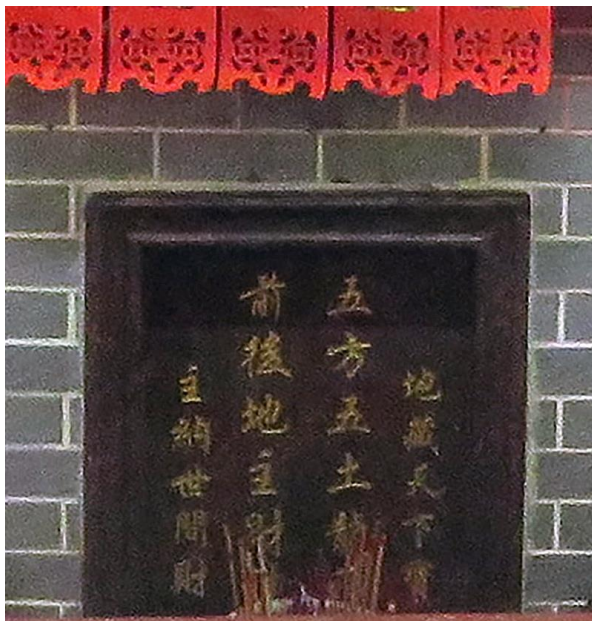 地藏天下寶
五方五土龍
前後地主財
主納世間財